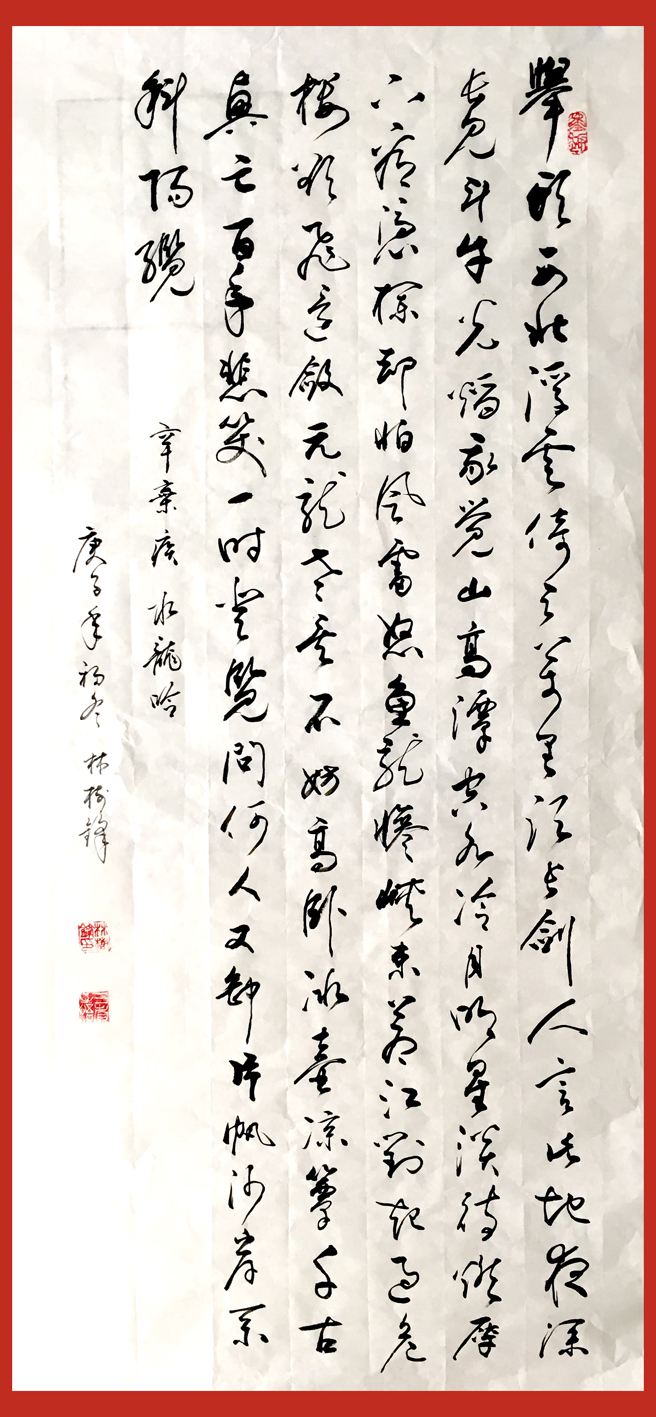 舉頭西北浮雲倚天萬里須長劍人言此地夜深
長見斗牛光焰我覺山高潭空水冷月明星淡待燃犀
下看憑欄却怕風雷怒魚龍慘峽束蒼江對起過危
樓欲飛還斂元龍老矣不妨高卧冰壺涼簟千古
興亡百年悲笑一时登覽問何人又卸片帆沙岸系
斜陽纜
辛棄疾 水龍吟
庚子年初冬 林樹鋒